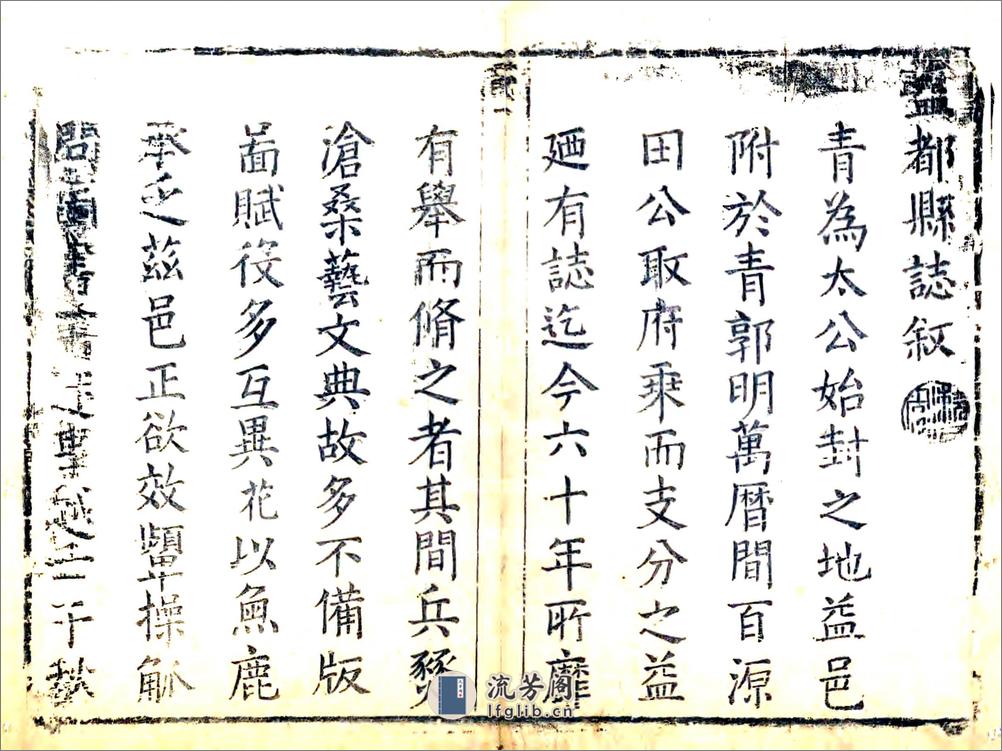 益都縣誌叙
青為太公始封之地益邑
附於青郭明萬曆間百源
田公取府乘而支分之益
廼有誌迄今六十年所靡
有舉而脩之者其間兵燹
滄桑藝文典故多不備版
啚賦役多互異花以魚鹿
承乏茲邑正欲效顰操觚
二千
流芳阁
lfglib.cn